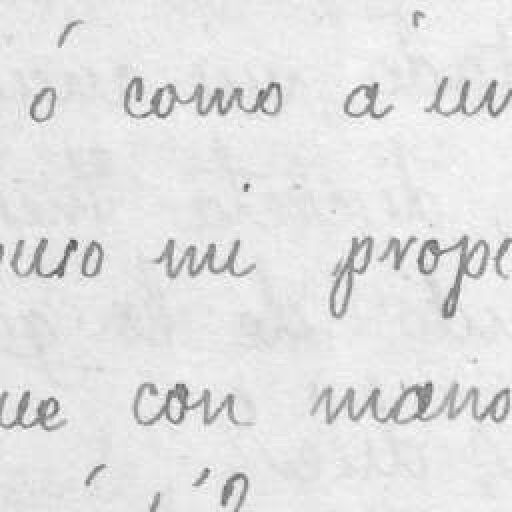 ó como a un
puso mi prope
ue con mano